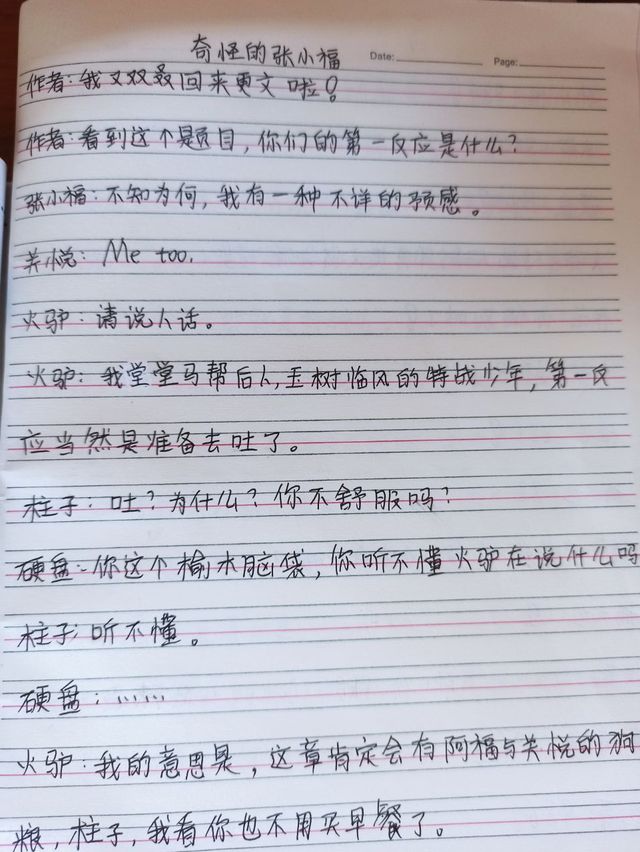 奇怪的张小福
Date: Page:
作者:我又双叒回来更文啦!
作者:看到这个题目,你们的第一反应是什么?
张小福:不知为何,我有一种不详的预感。
关悦:Me too.
火驴:请说人话。
火驴:我堂堂马帮后人,玉树临风的特战少年,第一反
应当然是准备去吐了。
柱子:吐?为什么?你不舒服吗?
硬盘:你这个榆木脑袋,你听不懂火驴在说什么吗
柱子:听不懂。
硬盘:……
火驴:我的意思是,这章肯定会有阿福与关悦的狗
粮,柱子,我看你也不用买早餐了。